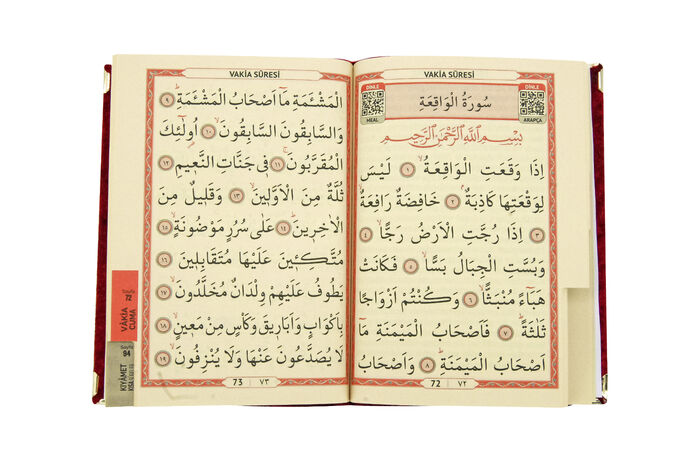 VAKIA SÛRESİ
DİNLE
MEAL
سُورَةُ الْوَاقِعَةِ
DİNLE
ARAPÇA
بِسْمِ اللّٰهِ الرَّحْمٰنِ الرَّحِيمِ
اِذَا وَقَعَتِ الْوَاقِعَةُۙ ﴿١﴾ لَيْسَ
لِوَقْعَتِهَا كَاذِبَةٌۢ ﴿٢﴾ خَافِضَةٌ رَافِعَةٌۙ
﴿٣﴾ اِذَا رُجَّتِ الْاَرْضُ رَجًّاۙ ﴿٤﴾
وَبُسَّتِ الْجِبَالُ بَسًّاۙ ﴿٥﴾ فَكَانَتْ
هَبَٓاءً مُنْبَثًّاۙ ﴿٦﴾ وَكُنْتُمْ اَزْوَاجًا
ثَلٰثَةًۜ ﴿٧﴾ فَاَصْحَابُ الْمَيْمَنَةِ مَٓا
اَصْحَابُ الْمَيْمَنَةِۜ ﴿٨﴾ وَاَصْحَابُ
72 | ٧٢
VAKIA SÛRESİ
الْمَشْـَٔمَةِ مَٓا اَصْحَابُ الْمَشْـَٔمَةِۜ ﴿٩﴾
وَالسَّابِقُونَ السَّابِقُونَۙ ﴿١٠﴾ اُو۬لٰٓئِكَ
الْمُقَرَّبُونَۚ ﴿١١﴾ فِي جَنَّاتِ النَّعِيمِ ﴿١٢﴾
ثُلَّةٌ مِنَ الْاَوَّلِينَۙ ﴿١٣﴾ وَقَلِيلٌ مِنَ
الْاٰخِرِينَۜ ﴿١٤﴾ عَلٰى سُرُرٍ مَوْضُونَةٍۙ ﴿١٥﴾
مُتَّكِـِٔينَ عَلَيْهَا مُتَقَابِلِينَ ﴿١٦﴾
يَطُوفُ عَلَيْهِمْ وِلْدَانٌ مُخَلَّدُونَۙ ﴿١٧﴾
بِاَكْوَابٍ وَاَبَارِيقَ وَكَأْسٍ مِنْ مَعِينٍۙ ﴿١٨﴾
لَا يُصَدَّعُونَ عَنْهَا وَلَا يُنْزِفُونَۙ ﴿١٩﴾
73 | ٧٣
Sayfa
72
VAKIA
CUMA
Sayfa
94
KIYÂMET